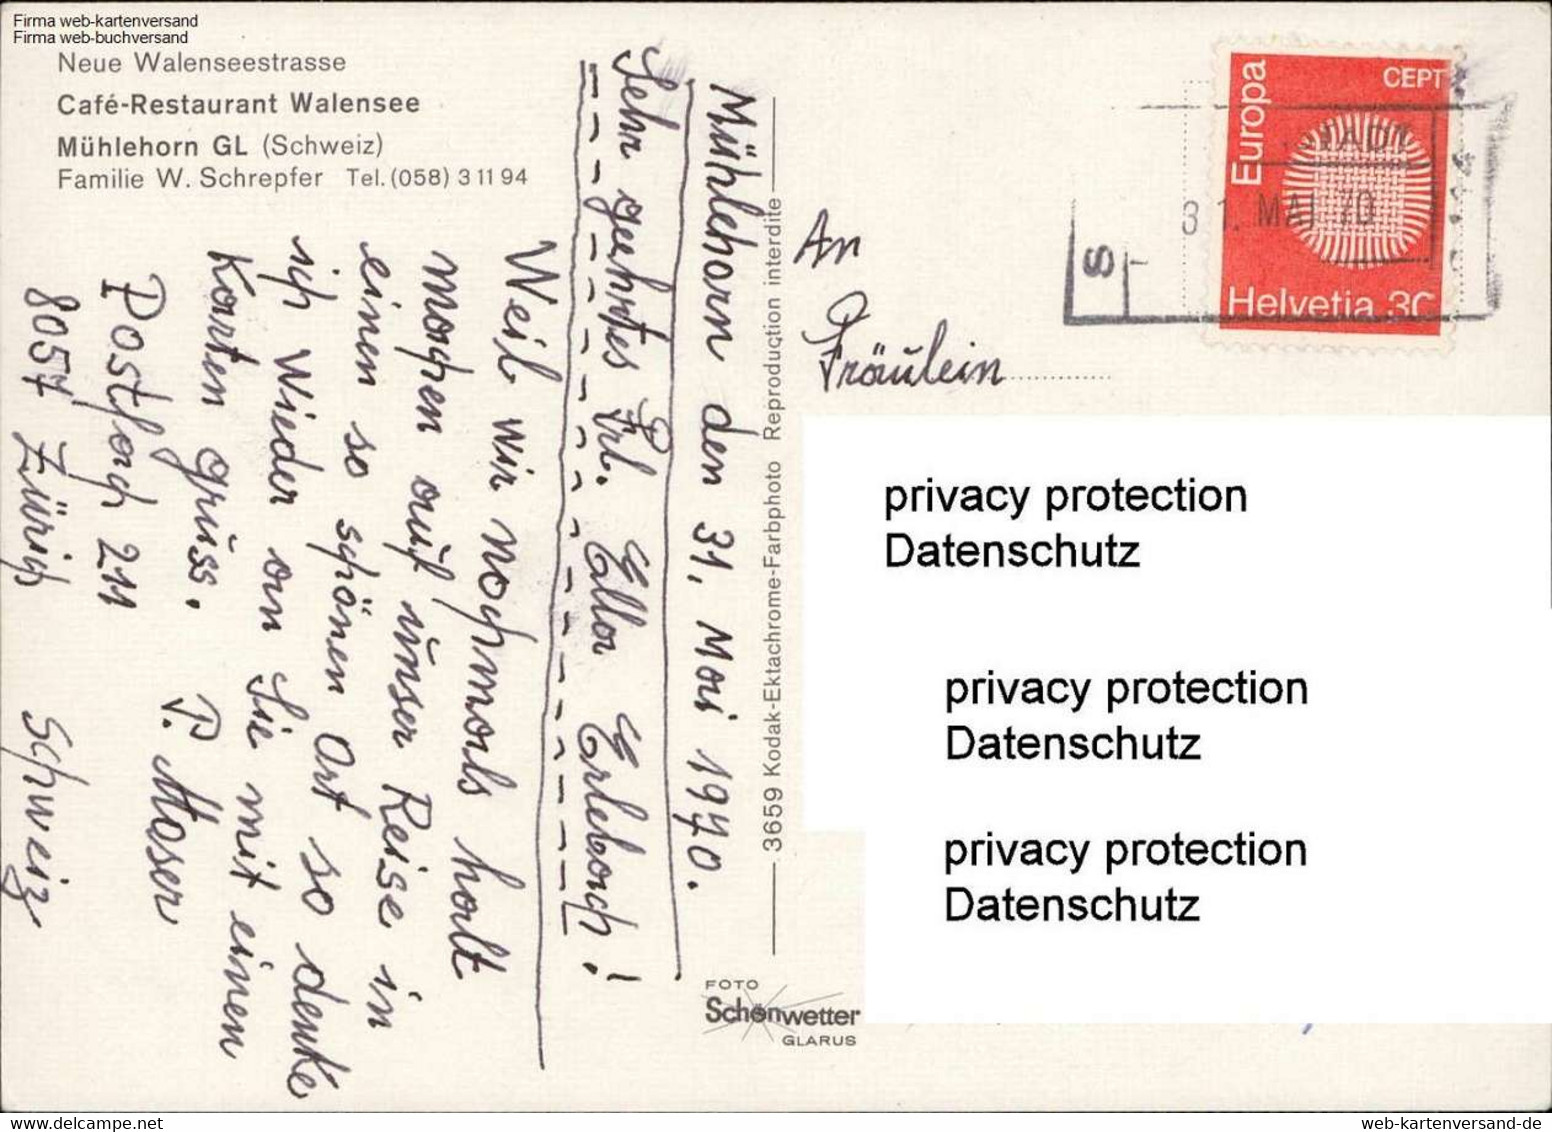 Firma web-kartenversand
Firma web-buchversand
Neue Walenseestrasse
Café-Restaurant Walensee
Mühlehorn GL (Schweiz)
Familie W. Schrepfer Tel. (058) 3 11 94
Mühlehorn den 31. Mai 1970.
Sehr geehrtes Frl. Ella Erlebach!
Weil wir nochmals halt
machen auf unser Reise in
einen so schönen Ort so denke
ich Wieder an Sie mit einen
Karten gruss. P. Moser
Postfach 211
8057 Zürich Schweiz
3659 Kodak-Ektachrome-Farbphoto Reproduction interdite
FOTO
Schönwetter
GLARUS
Europa
CEPT
Helvetia 30
31. MAI 70
S
An
Fräulein
privacy protection
Datenschutz
privacy protection
Datenschutz
privacy protection
Datenschutz
www.web-kartenversand-de